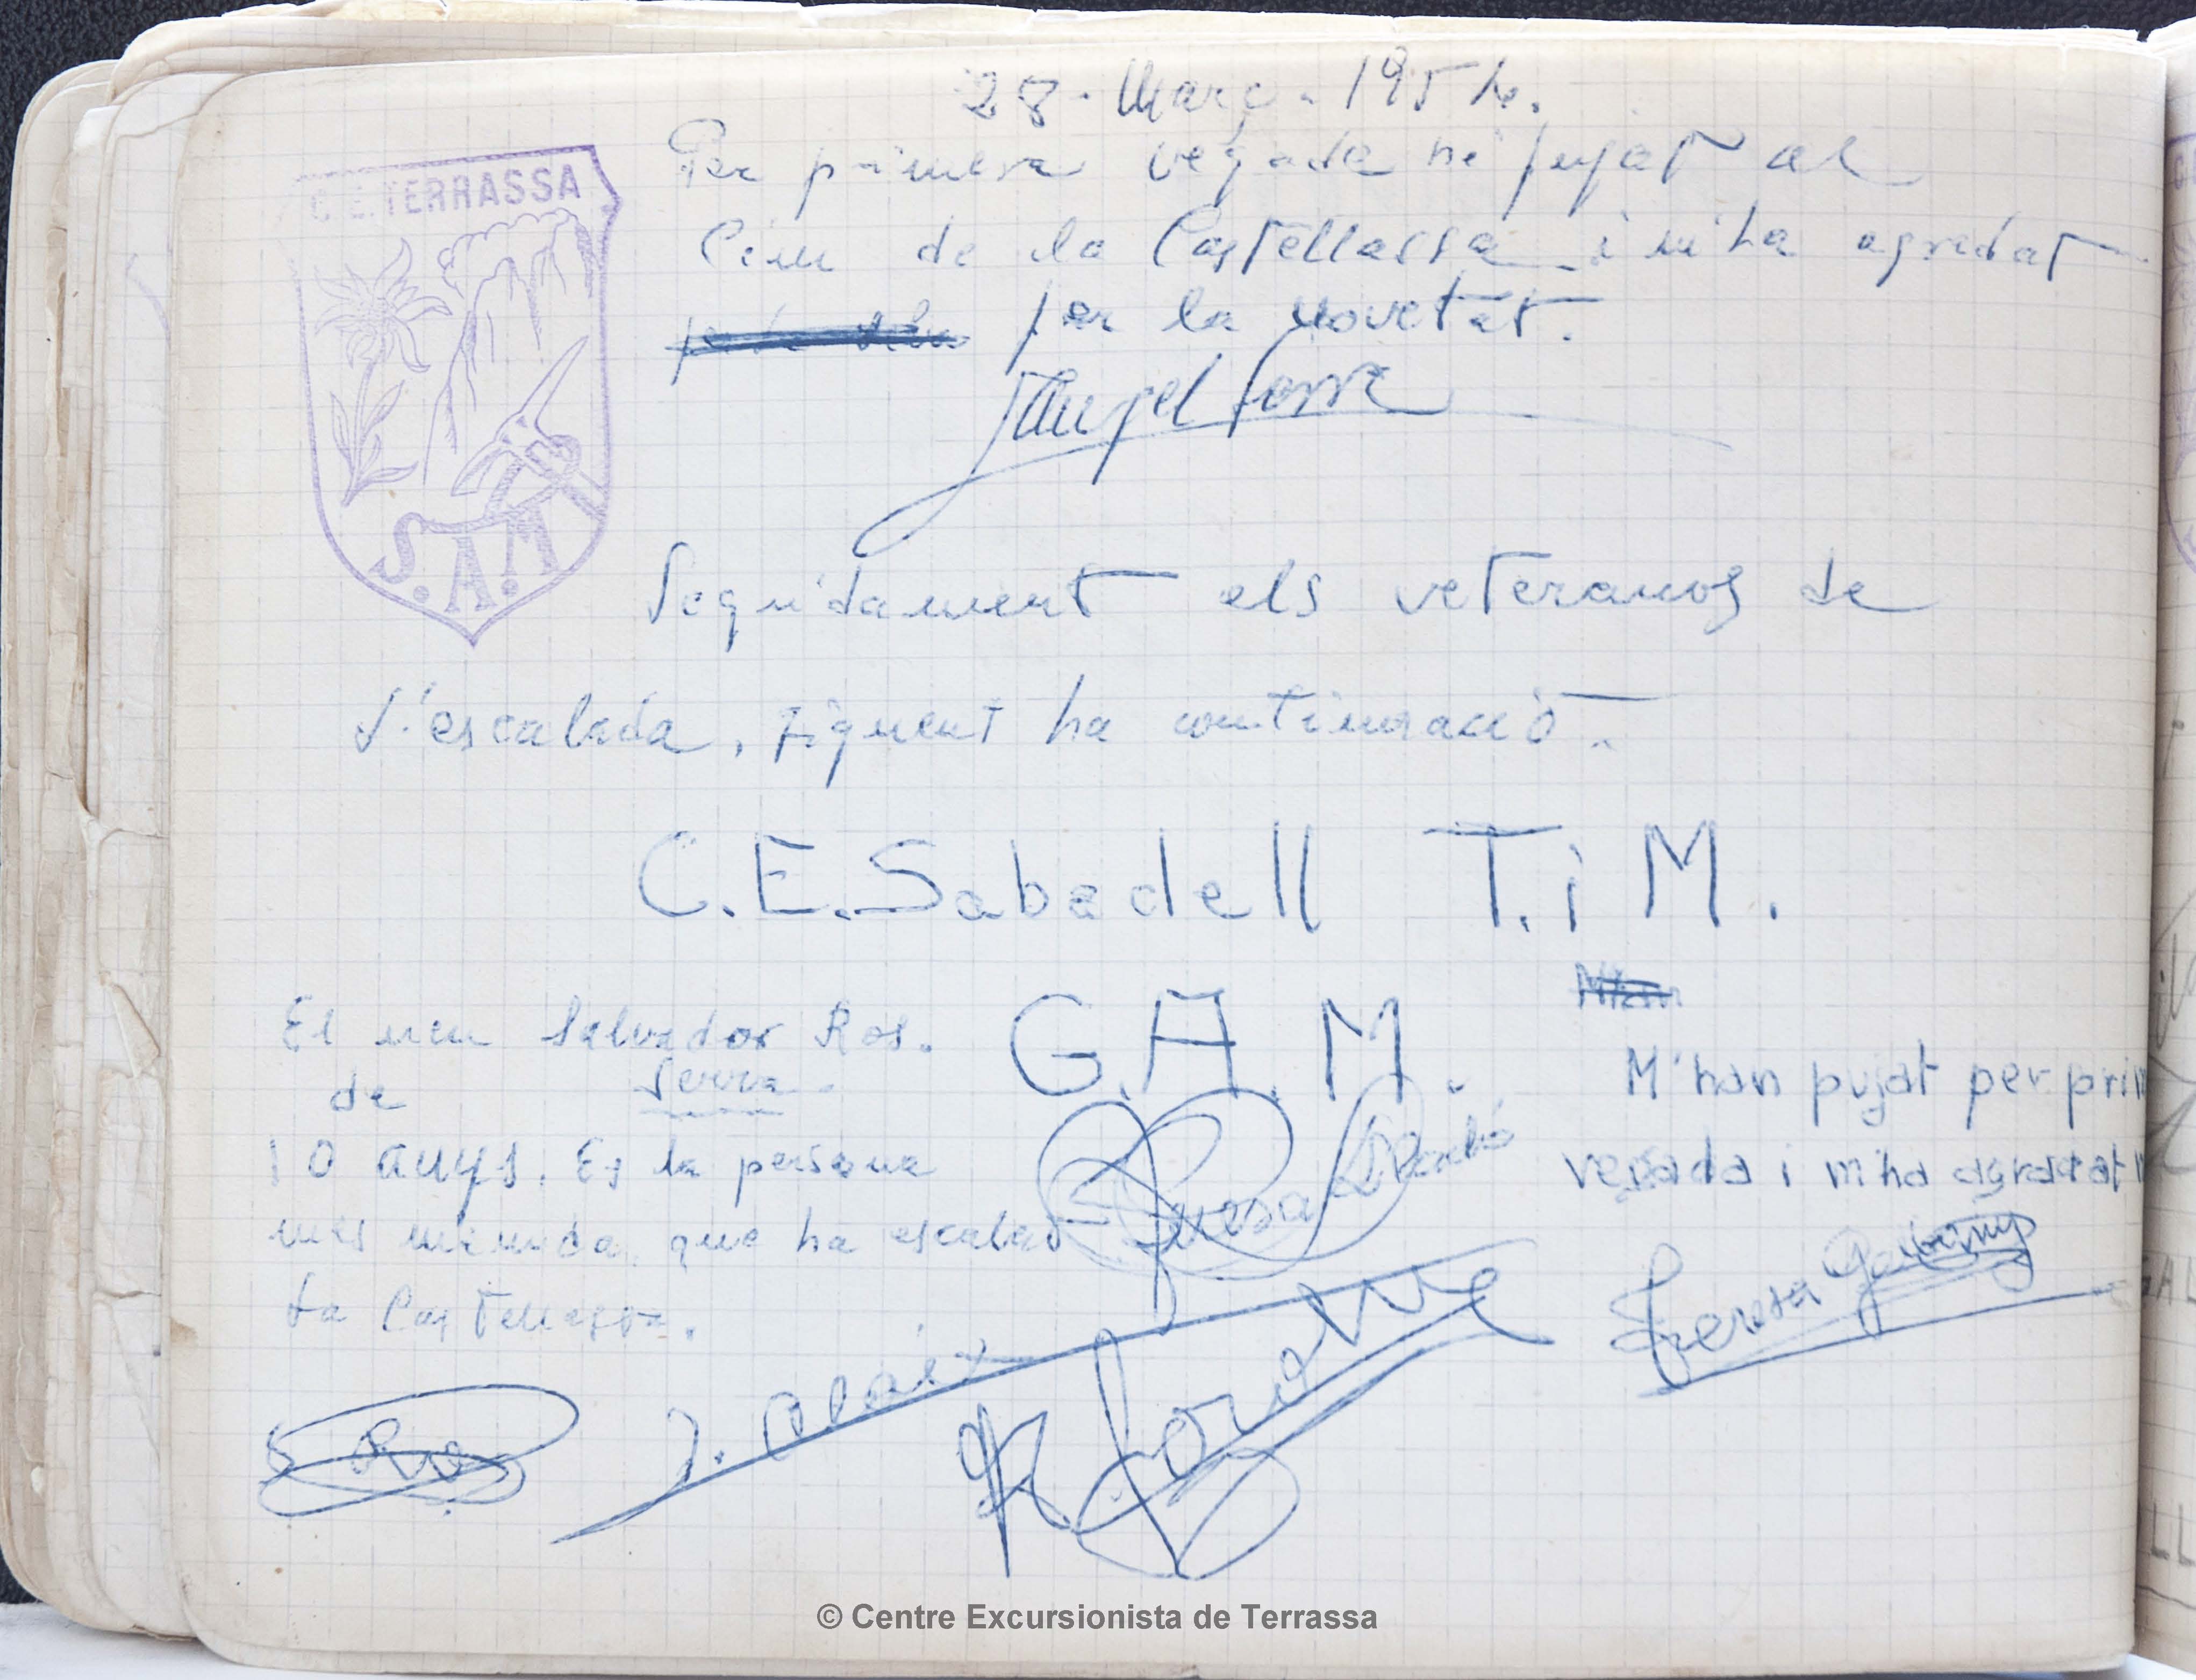 28 - Març - 1954.
C.E. TERRASSA
Per primera vegada hé pujat al
Cim de la Castellassa i m'ha agradat
per la novetat.
Àngel
S.A.M
Seguidament els veteranos de
l'escalada, firment ha continuació.
C.E. Sabadell T. i M.
G.A.M.
El nen Salvador Ros.
de Serra.
10 anys. Es la persona
més menuda que ha escalat
la Castellassa.
M'han pujat per prim
vegada i m'ha agradat m
Teresa
S Ros
J. Aloix
© Centre Excursionista de Terrassa